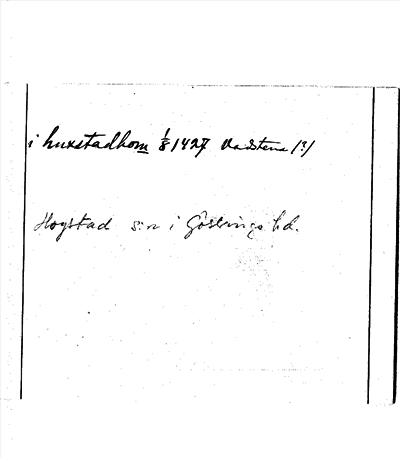 i huxstadhom 1/8 1427 Vadstena (?)
Hogstad s:n i Göstrings hd.